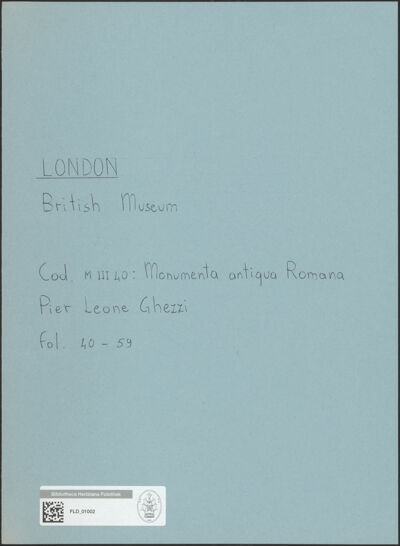 LONDON
British Museum
Cod. M III 40: Monumenta antiqua Romana
Pier Leone Ghezzi
fol. 40 - 59
Bibliotheca Hertziana Fotothek
FLD_01002